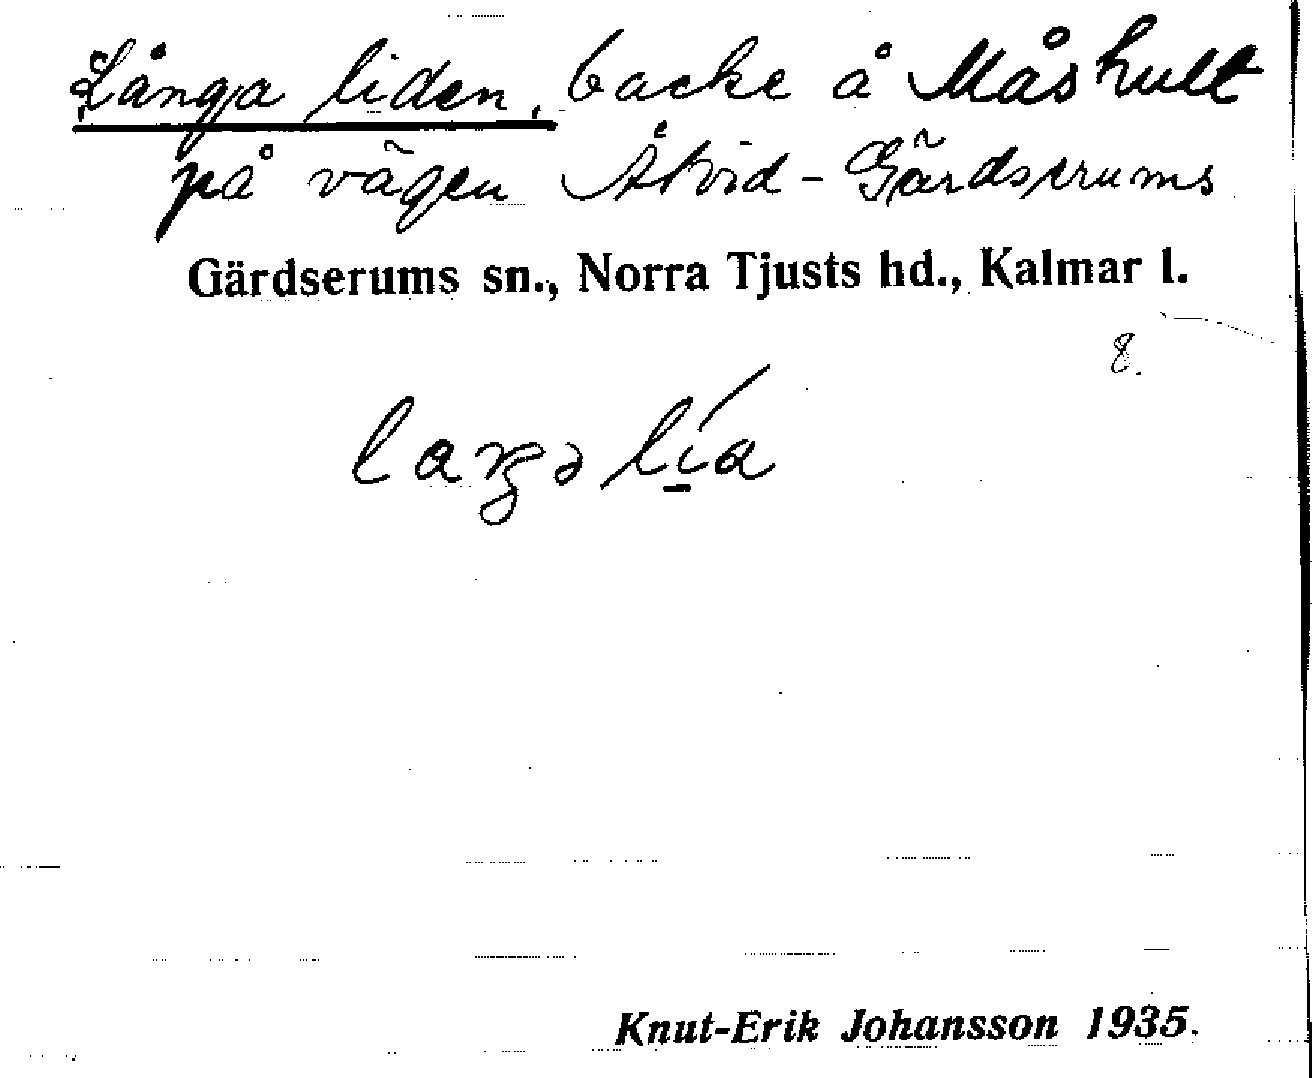 Långa liden, backe å Måshult
på vägen Åtvid-Gärdserums
Gärdserums sn., Norra Tjusts hd., Kalmar l.
8.
Knut-Erik Johansson 1935.